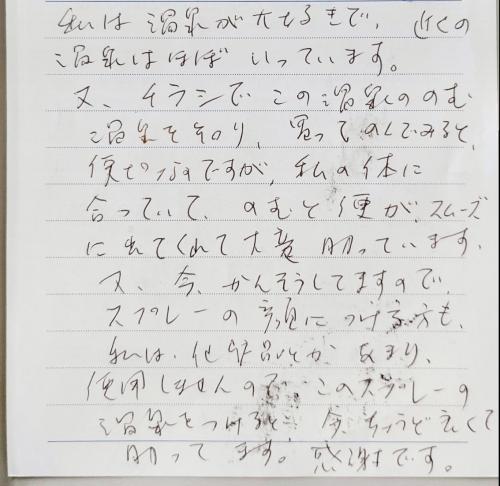 私は温泉が大好きで、近くの
温泉はほぼいっています。
又、チラシでこの温泉ののむ
温泉を知り、買ってのんでみると、
便ぴぎみですが、私の体に
合っていて、のむと便が、スムーズ
に出てくれて大変助っています。
又、今、かんそうしてますので、
スプレーの顔につける方も、
私は、化粧品とかあまり、
使用しませんので、このスプレーの
温泉をつけると、今、ちょうど良くて
助ってます。感謝です。